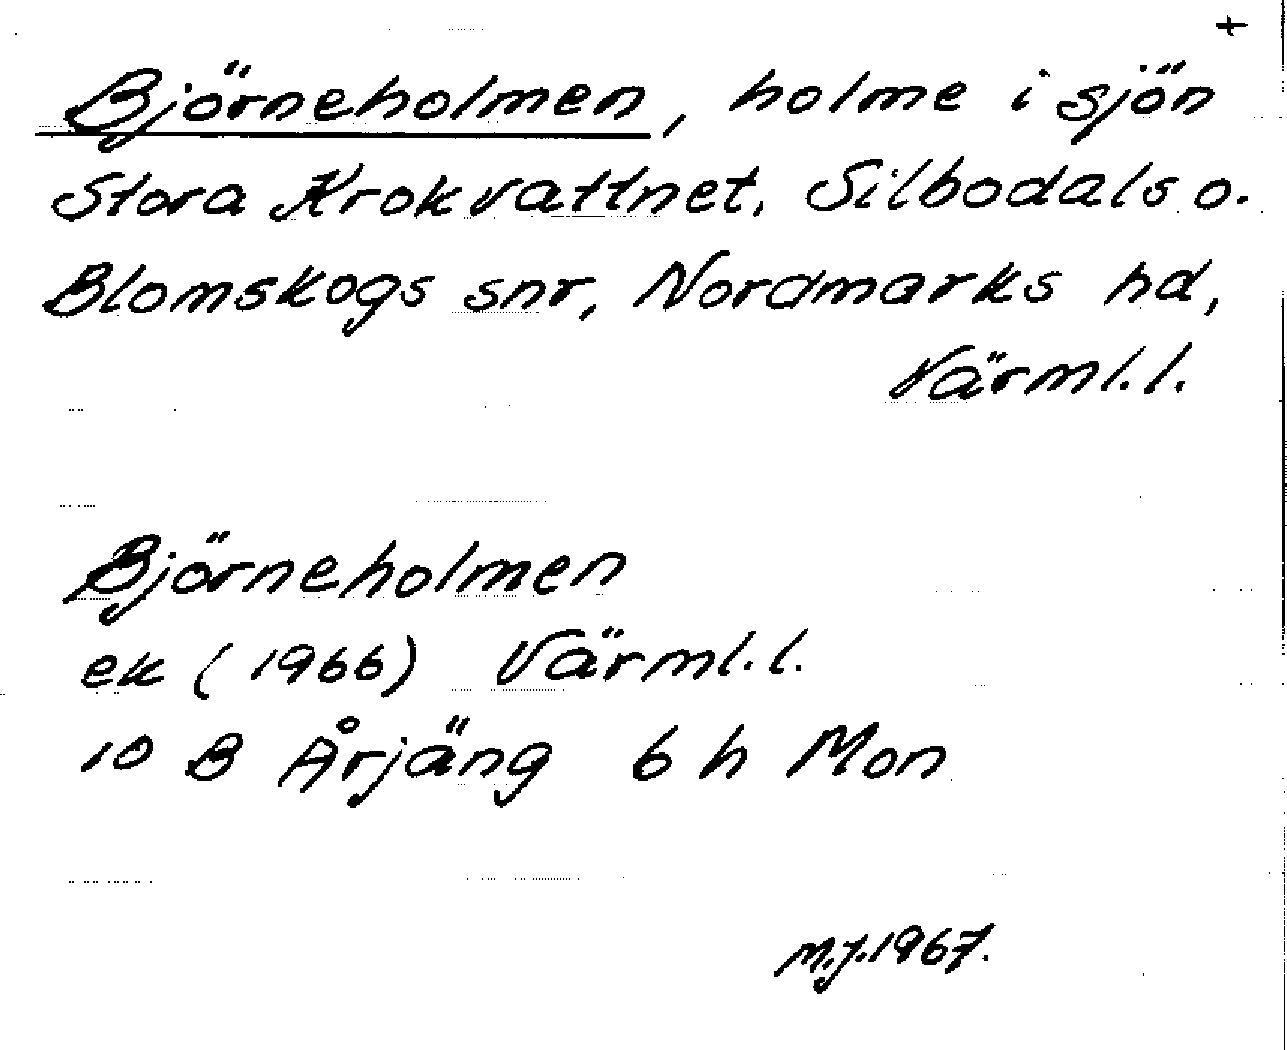 +
Björneholmen, holme i sjön
Stora Krokvattnet, Silbodals o.
Blomskogs snr, Nordmarks hd,
Värml. l.
Björneholmen
ek (1966) Värml. l.
10 B Årjäng 6 h Mon
M.J. 1967.